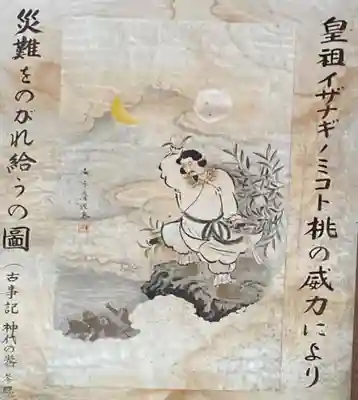 皇祖イザナギノミコト桃の威力により
災難をのがれ給うの圖
(古事記 神代の